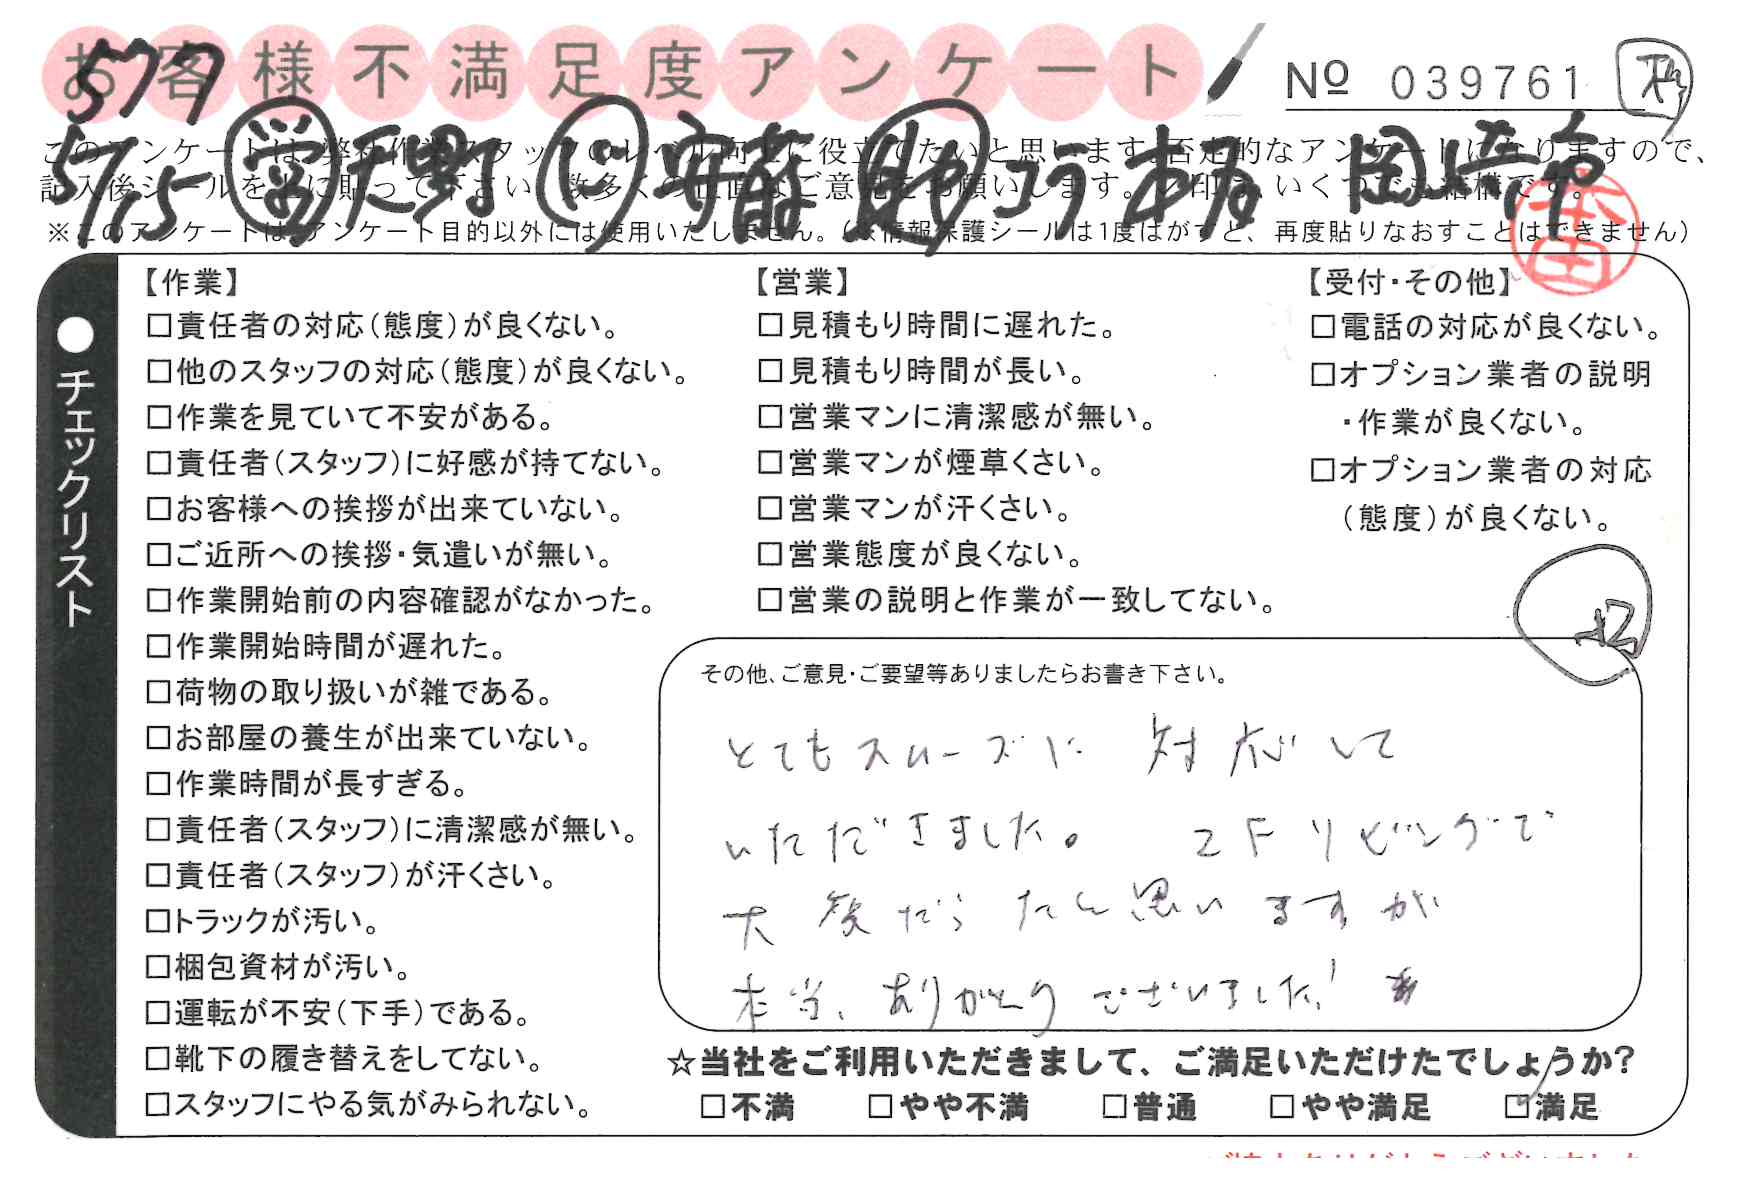 お客様不満足度アンケート
№ 039761
577
5/15 営 天野 安藤 コラ 本店 岡崎市
このアンケートは、弊社作業スタッフのレベル向上に役立てたいと思います。否定的なアンケートになりますので、
記入後シールを上に貼って下さい。数多くの正直なご意見をお願いします。✓印は、いくつでも結構です。
※このアンケートは、アンケート目的以外には使用いたしません。(※情報保護シールは1度はがすと、再度貼りなおすことはできません)
本田
●チェックリスト
【作業】
□責任者の対応(態度)が良くない。
□他のスタッフの対応(態度)が良くない。
□作業を見ていて不安がある。
□責任者(スタッフ)に好感が持てない。
□お客様への挨拶が出来ていない。
□ご近所への挨拶・気遣いが無い。
□作業開始前の内容確認がなかった。
□作業開始時間が遅れた。
□荷物の取り扱いが雑である。
□お部屋の養生が出来ていない。
□作業時間が長すぎる。
□責任者(スタッフ)に清潔感が無い。
□責任者(スタッフ)が汗くさい。
□トラックが汚い。
□梱包資材が汚い。
□運転が不安(下手)である。
□靴下の履き替えをしてない。
□スタッフにやる気がみられない。
【営業】
□見積もり時間に遅れた。
□見積もり時間が長い。
□営業マンに清潔感が無い。
□営業マンが煙草くさい。
□営業マンが汗くさい。
□営業態度が良くない。
□営業の説明と作業が一致してない。
【受付・その他】
□電話の対応が良くない。
□オプション業者の説明
・作業が良くない。
□オプション業者の対応
(態度)が良くない。
その他、ご意見・ご要望等ありましたらお書き下さい。
とてもスムーズに 対応して
いただきました。 2Fリビングで
大変だったと思いますが
本当、ありがとうございました!
☆当社をご利用いただきまして、ご満足いただけたでしょうか?
□不満 □やや不満 □普通 □やや満足 ☑満足